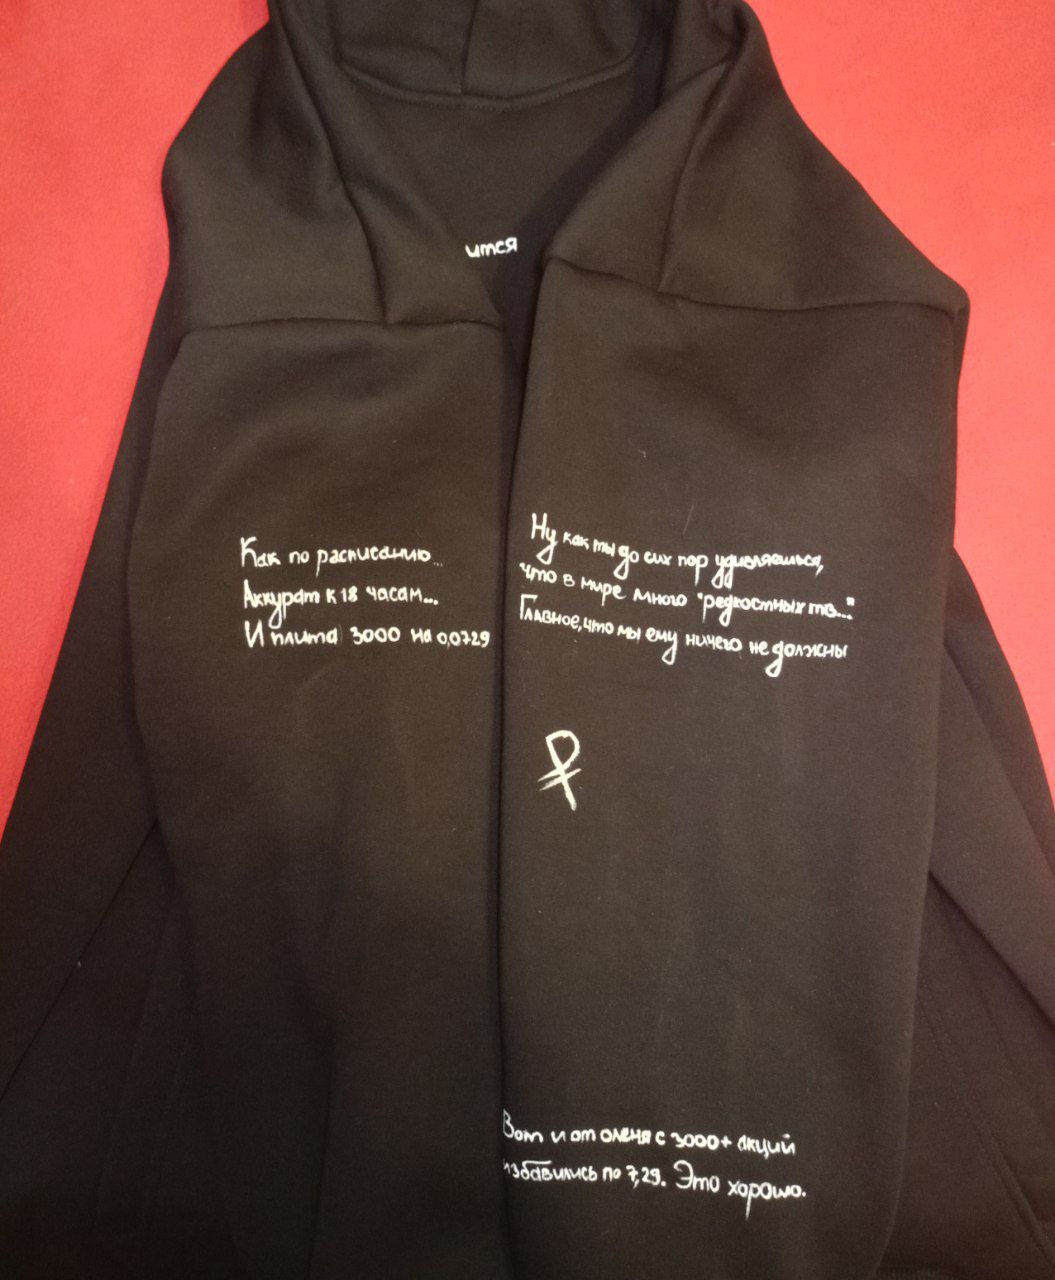 ится
Как по расписанию...
Аккурат к 18 часам...
И плита 3000 на 0,0729
Ну как ты до сих пор удивляешься,
что в мире много "редкостных тв..."
Главное, что мы ему ничего не должны
₽
Вот и от оленя с 3000+ акций
избавились по 7,29. Это хорошо.